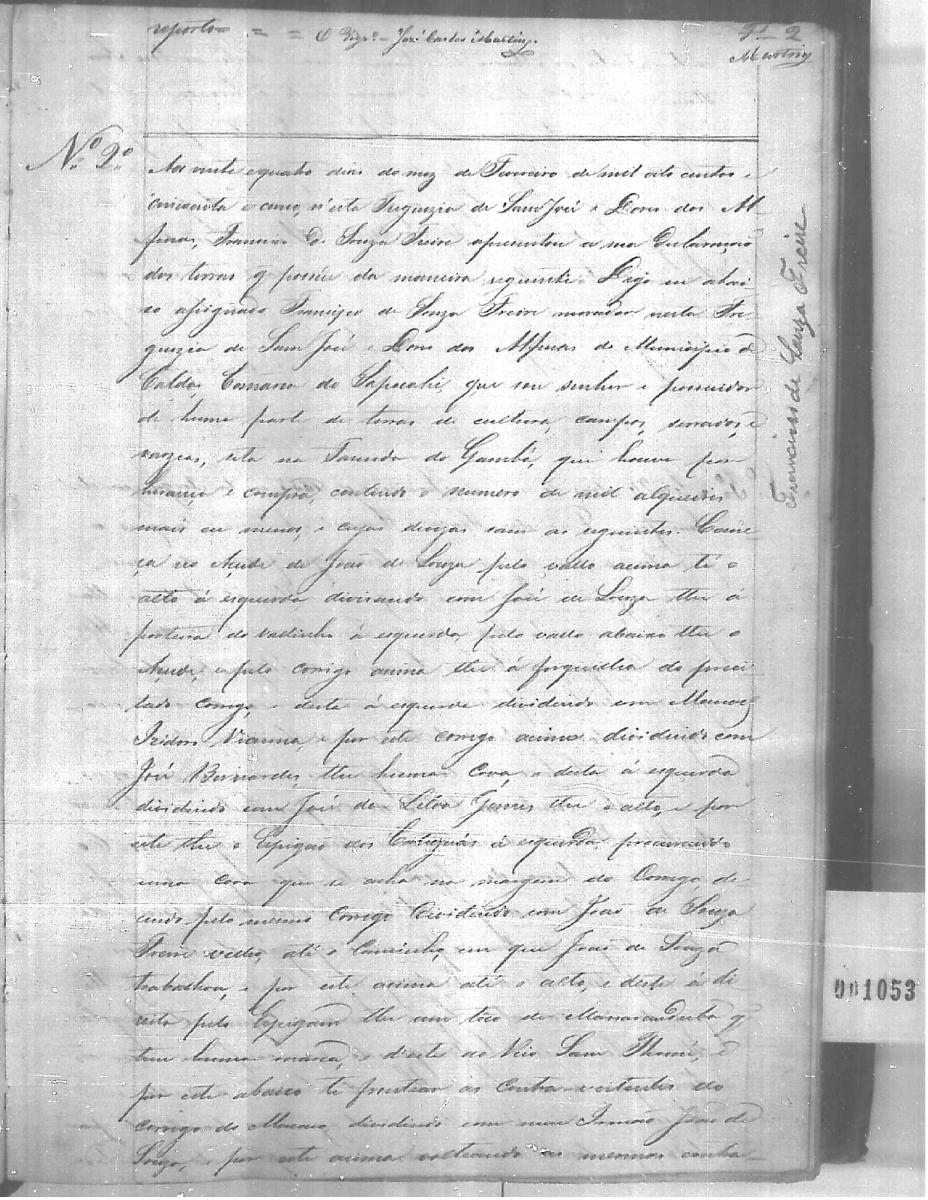 reporto = = O Vigr.º José Carlos Martins.
Fl. 2
Martins
N.º 2.º
Aos vinte e quatro dias do mez de Fevereiro de mil oito centos e
cincoenta e cinco, n'esta Freguezia de Sam José e Dores dos Al-
fenas, Francisco de Souza Freire apresentou a sua declaração
das terras q possue da maneira seguinte. Digo eu abai-
xo assignado Francisco de Souza Freire morador nesta Fre
guezia de Sam José e Dores dos Alfenas do Municipio de
Caldas Comarca do Sapucahi, que sou senhor e possuidor
de huma parte de terras de cultura, campos, serrados, e
varzeas, sita na Fazenda do Gambá, que houve por
herança e compra, contendo o numero de mil alqueires
mais ou menos, e cujas divizas sam as seguintes. Come-
ça no Açude de João de Souza pelo vallo acima té o
alto á esquerda divisando com José de Souza the a
porteira do vallinho á esquerda pelo vallo abaixo the o
Açude, e pelo corrigo acima the á forquilha do preci-
tado corrigo, e desta á esquerda dividindo com Manoel
Izidoro Vianna, e por este corrigo acima dividindo com
José Bernardes, the huma cova, e desta á esquerda
dividindo com José da Silva Gomes the o alto, e por
este the o Espigão dos á esquerda procurando
uma cova que se acha na margem do Corrigo, de-
cendo pelo mesmo Corrigo dividindo com João de Souza
Freire velho, até o Caminho, em que João de Souza
trabalhou, e por este acima até o alto, e deste á di
reita pelo Espigam the um toco de Massaranduba q
tem huma marca, e d'este ao Rio Sam Thomé, e
por este abaixo té frontear as contra-vertentes do
corrigo do Macaco, dividindo com meu Irmão João de
Souza, e por este acima volteando as mesmas contra
Francisco de Souza Freire
001053